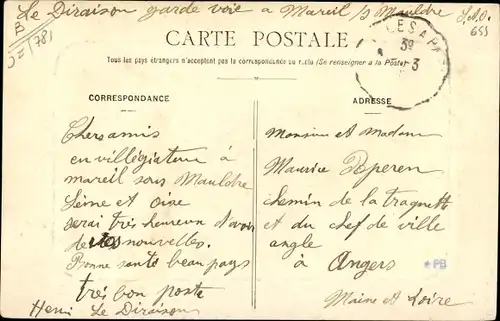 Le Diraison garde voie a Mareil s/ Mauldre S.N.O.
B (78) 653
CARTE POSTALE
Tous les pays étrangers n'acceptent pas la correspondance au recto (Se renseigner a la Poste)
39
3
CORRESPONDANCE
Chers amis
en villégiature à
mareil sous Mauldre
Seine et Oise
serai très heureux d'avoir
de vos nouvelles.
Bonne santé beau pays
très bon poste
Henri Le Diraison
ADRESSE
Monsieur et Madame
Maurice Peperen
chemin de la traquette
et du chef de ville
angle
à Angers
Maine et Loire
PB